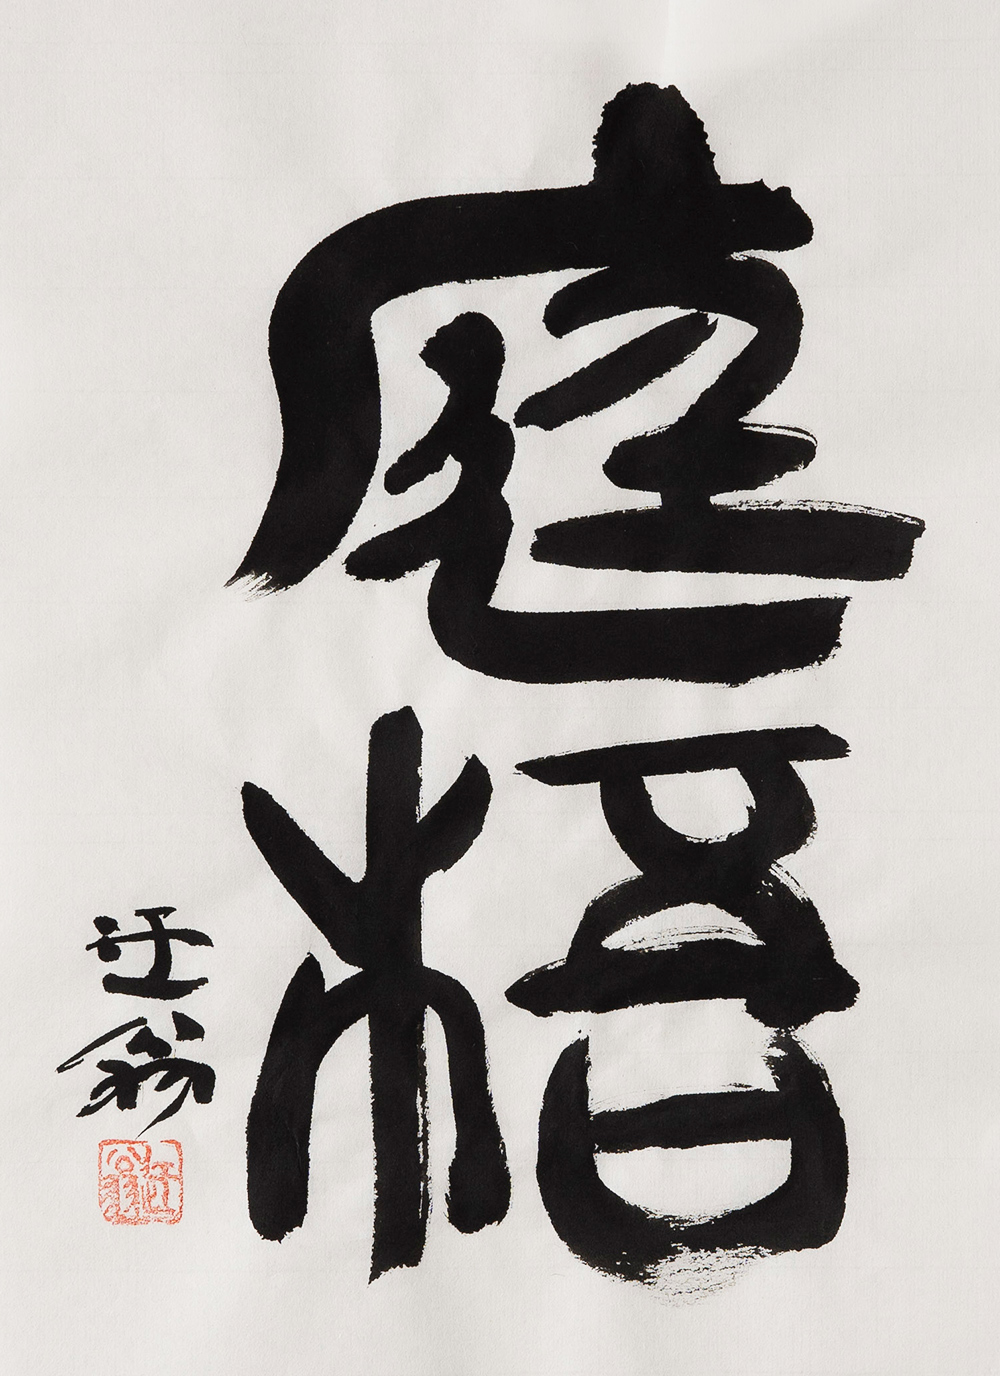 庭梧
迂翁